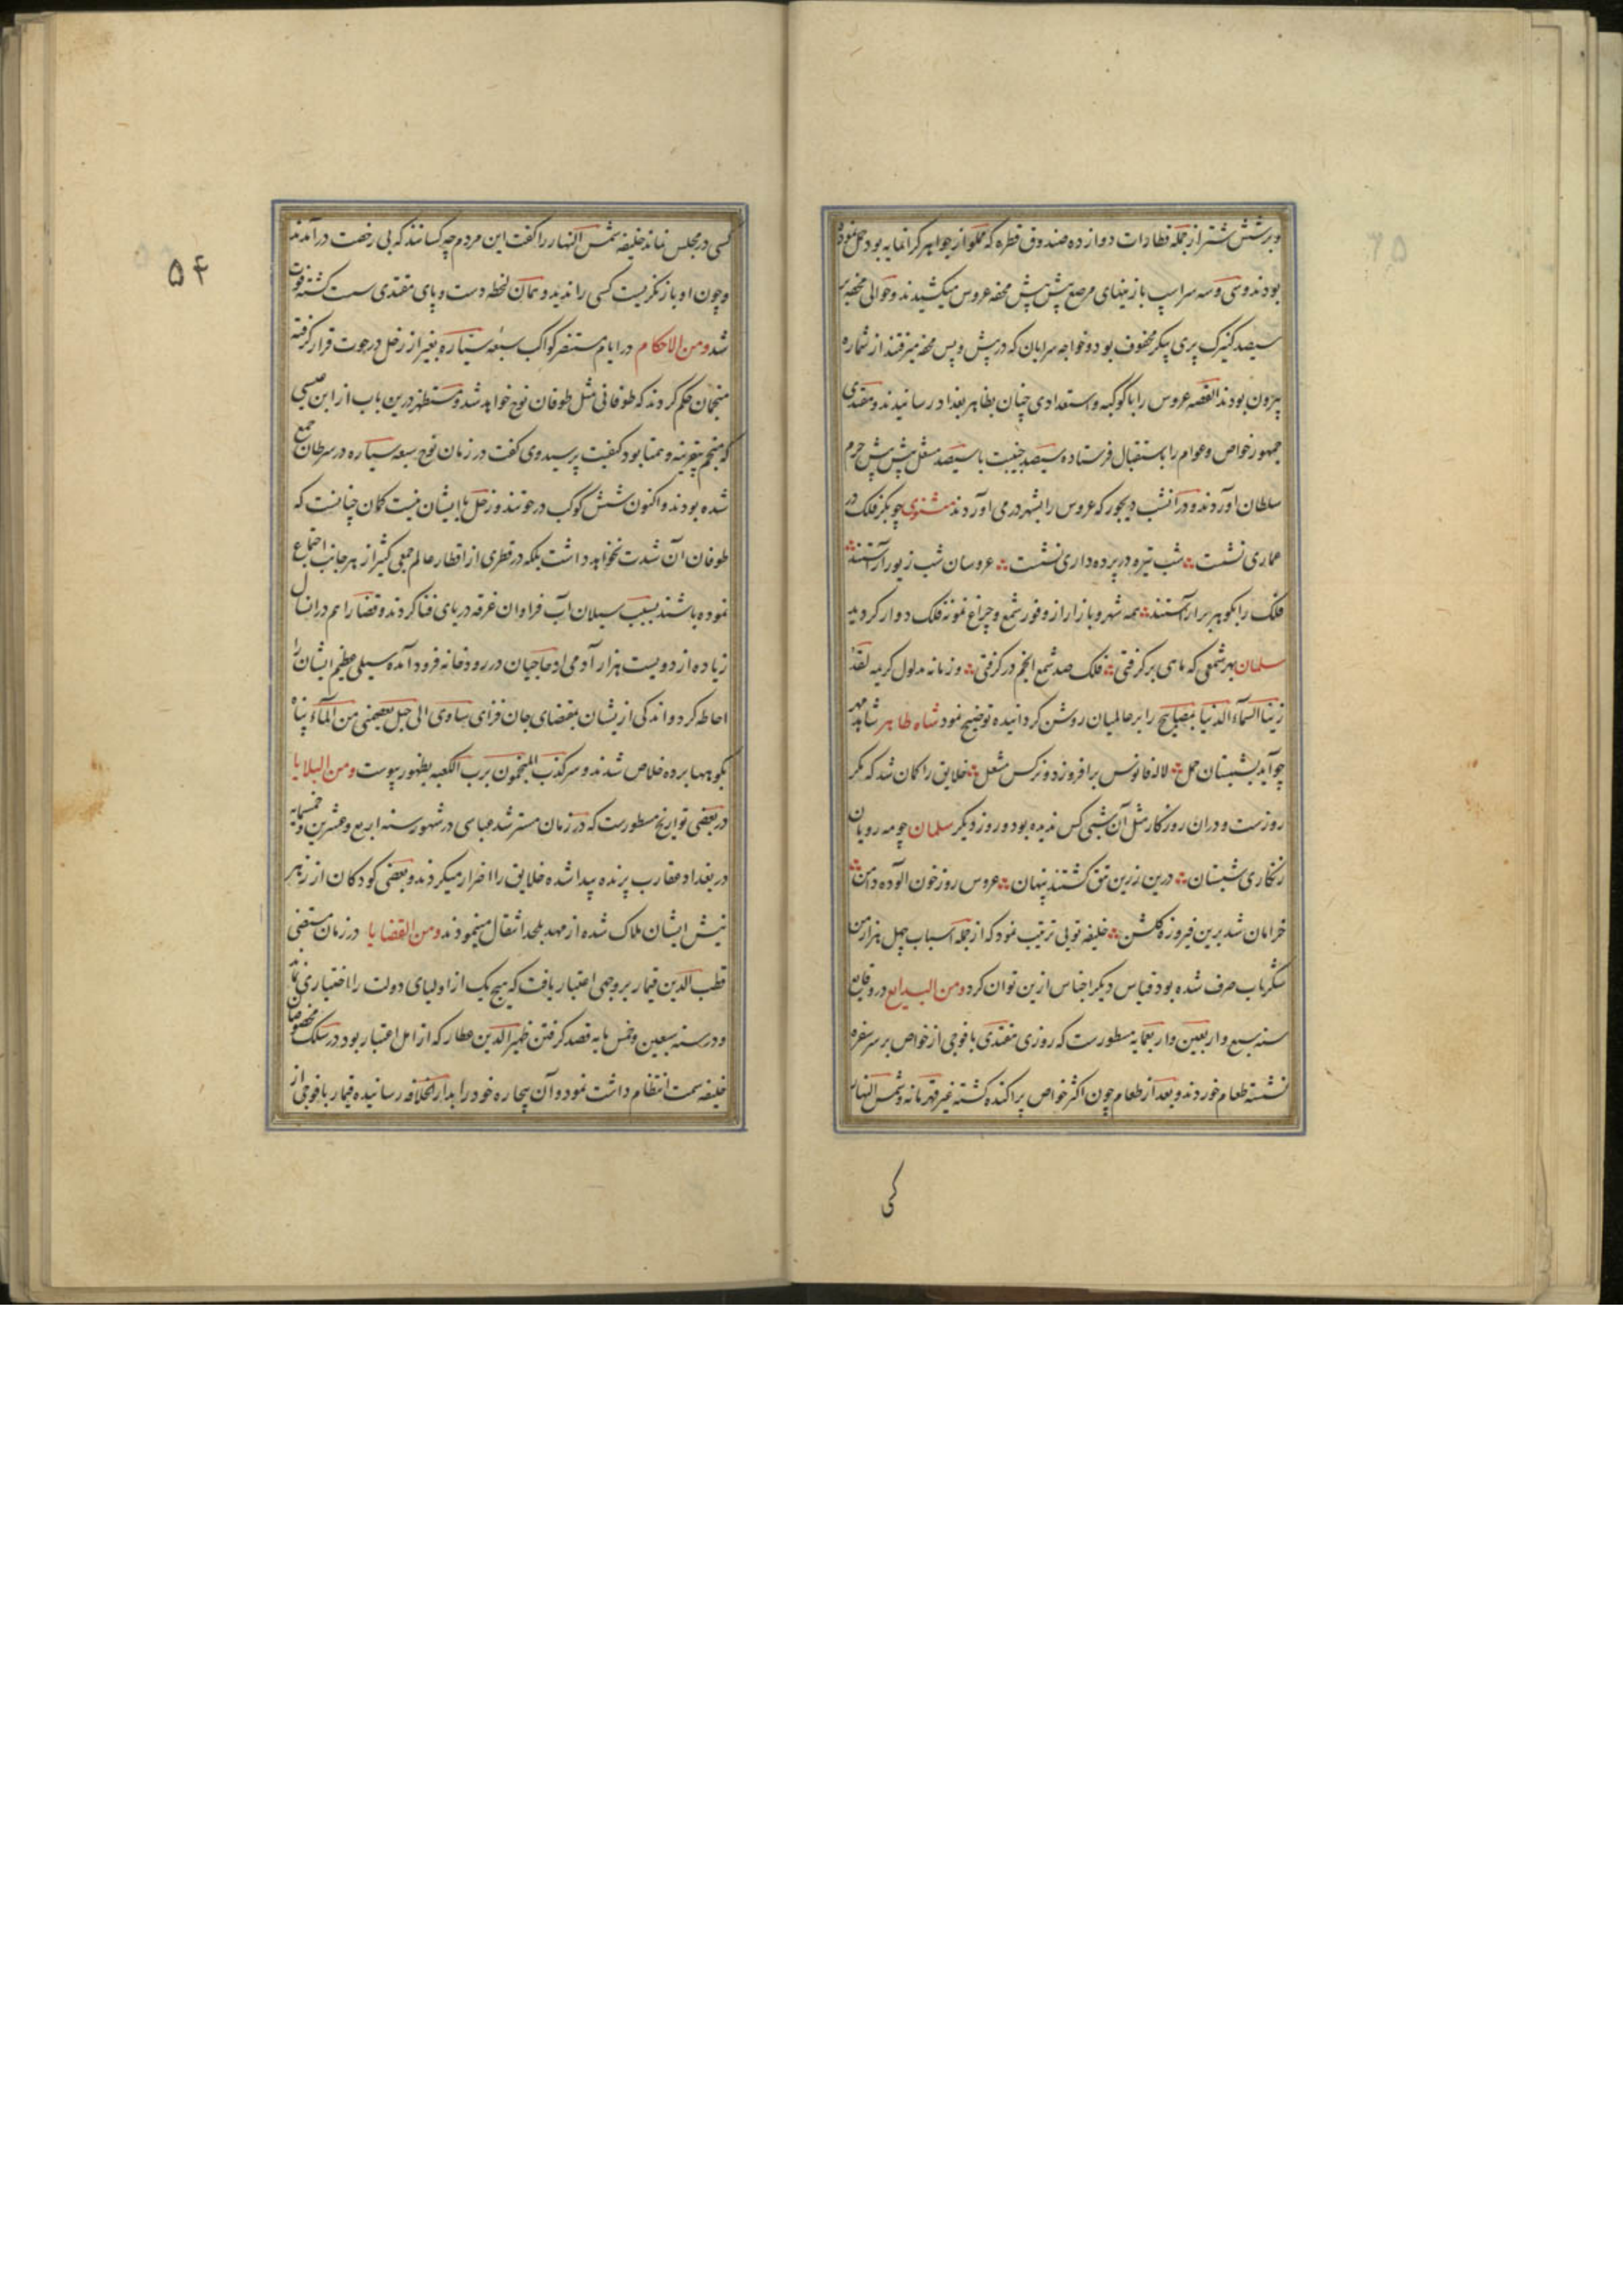 و بر شش شتر از جمله قطارات دوازده صندوق قطره که مملو از جواهر گرانمایه بود حمل نموده
بودند و سی و سه سر اسپ با زینهای مرصع پیش پیش محفه عروس میکشیدند و حوالی محفه بر
سیصد کنیزک پری پیکر محفوف بود و خواجه سرایان که در پیش و پس محفه میرفتند از شماره
بیرون بودند القصه عروس را با کوکبه و استعدادی چنان بظاهر بغداد رسانیدند و مقتدی
جمهور خواص و عوام را باستقبال فرستاده سیصد جنیبت با سیصد مشعل پیش پیش حرم
سلطان آوردند و در آنشب دیجور که عروس را بشهر درمی آوردند مثنوی چو بکر فلک در
عماری نشست شب تیره در پرده داری نشست عروسان شب زیور آراستند
فلک را بگوهر برآراستند همه شهر و بازار از وفور شمع و چراغ نمونه فلک دوار گردید
سلمان بهر شمعی که ماهی برگرفتی فلک صد شمع انجم درگرفتی و زمانه مدلول کریمه لقد
زینا السماء الدنیا بمصابیح را بر عالمیان روشن گردانیده توضیح نمود شاه طاهر شاهد مهر
چو آید بشبستان حمل لاله فانوس برافروزد و نرگس مشعل خلایق را گمان شد که مگر
روزست و دران روزگار مثل آن شبی کس ندیده بود و روز دیگر سلمان چو مه رویان
زنگاری شبستان درین زرین تتق گشتند پنهان عروس روز خون آلوده دامن
خرامان شد برین فیروزه گلشن خلیفه تویی ترتیب نمود که از جمله اسباب چهل هزار من
شکر ناب صرف شده بود قیاس دیگر اجناس ازین توان کرد و من البدایع در وقایع
سنه سبع و اربعین و اربعمایه مسطورست که روزی مقتدی با فوجی از خواص بر سر سفره
نشسته طعام خوردند و بعد از طعام چون اکثر خواص پراکنده گشته غیر قهرمانه و شمس النهار
کسی
۵۴
کسی در مجلس نماند خلیفه شمس النهار را گفت این مردم چه کسانند که بی رخصت درآمدند
و چون او باز نگریست کسی را ندید و همان لحظه دست و پای مقتدی سست گشته فوت
شد و من الاحکام در ایام مستنصر کواکب سبعه سیاره بغیر از زحل در حوت قرار گرفته
منجمان حکم کردند که طوفانی مثل طوفان نوح خواهد شد و مستظهر درین باب از ابن عیسی
که منجم بیقرینه و همتا بود کیفیت پرسید وی گفت در زمان نوح سبعه سیاره در سرطان جمع
شده بودند و اکنون شش کوکب در حوتند و زحل با ایشان نیست گمان چنانست که
طوفان آن شدت نخواهد داشت بلکه در قطری از اقطار عالم جمعی کثیر از هر جانب اجتماع
نموده باشند بسبب سیلان آب فراوان غرقه دریای فنا گردند و قضا را هم در انسال
زیاده از دویست هزار آدمی از حاجیان در رودخانه فرود آمده سیلی عظیم ایشان را
احاطه کرد و اندکی ازیشان بمقتضای جان فزای ساوی الی جبل یعصمنی من الماء پناه
بکوهها برده خلاص شدند و سر کذب المنجمون برب الکعبه بظهور پیوست و من البلایا
در بعضی تواریخ مسطورست که در زمان مسترشد عباسی در شهور سنه اربع و عشرین و خمسمایه
در بغداد عقارب پرنده پیدا شده خلایق را اضرار میکردند و بعضی کودکان از زهر
نیش ایشان هلاک شده از مهد بلحد انتقال مینمودند و من القضایا در زمان مستضی
قطب الدین قیمار بر وجهی اعتبار یافت که هیچ یک از اولیای دولت را اختیاری نماند
و در سنه سبعین و خمس مایه قصد گرفتن ظهیر الدین عطار که از اهل اعتبار بود در سلک مخصوصان
خلیفه سمت انتظام داشت نمود و آن بیچاره خود را بدار الخلافه رسانیده قیمار با فوجی از